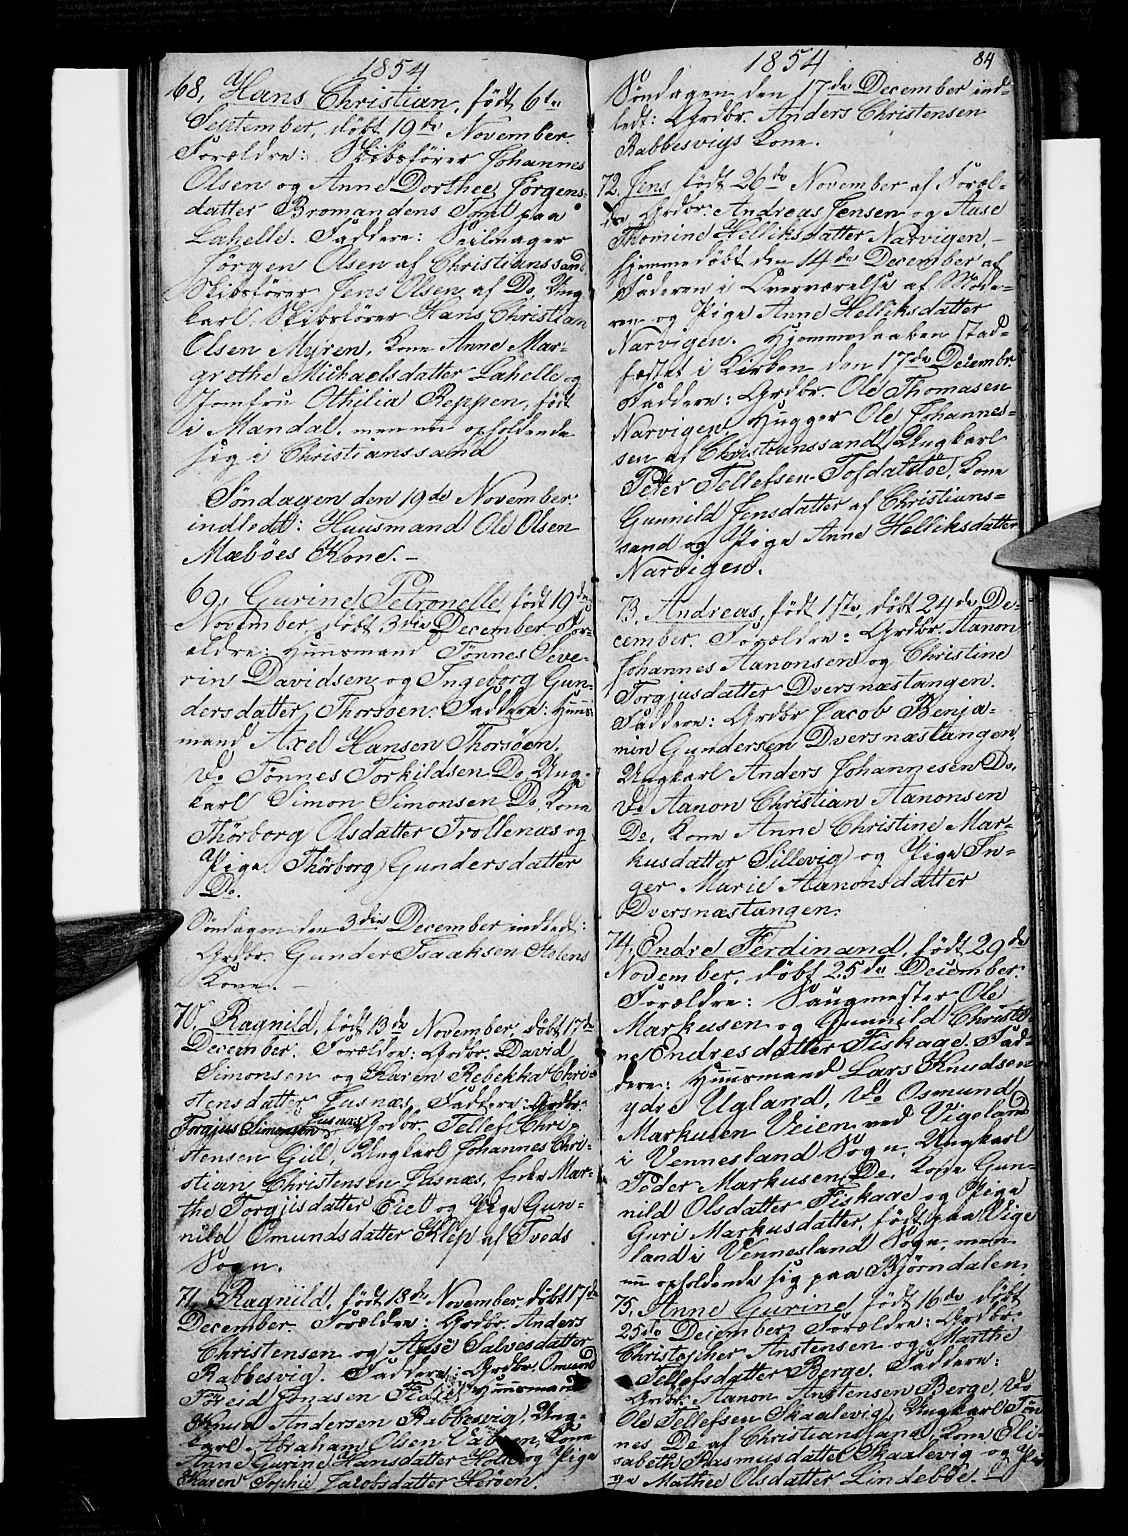 1854
68, Hans Christian, født 6te
September, døbt 19de November.
Forældre: Skibsfører Johannes
Olsen og Anne Dorthea Jørgens-
datter Bromandens Tomt paa
Lahelle. Faddere: Seilmager
Jørgen Olsen af Christianssand
Skibsfører Jens Olsen af Do, Ung-
karl, Skibsfører Hans Christian
Olsen Myren, Kone Anne Mar-
grethe Michaelsdatter Lahelle og
Jomfru Othilia Reppen, født
i Mandal, men nu opholdende
sig i Christianssand
Søndagen den 19de November
indledt: Huusmand Ole Olsen
Mæbøes Kone. -
69, Gurine Petronelle, født 19de
November, døbt 3die December. For-
ældre: Huusmand Tønnes Seve-
rin Davidsen og Ingeborg Gun-
dersdatter Thorsøen. Faddere: Huus-
mand Axel Hansen Thorsøen,
Do Tønnes Torkildsen Do, Ung-
karl Simon Simonsen Do, Kone
Thørborg Olsdatter Trollenæs og
Pige Thørborg Gundersdatter
Do.
Søndagen den 3die December indledt:
Grdbr. Gunder Isaaksen Stølens
Kone. -
70, Ragnild, født 13de November, døbt 17de
December. Forældre: Grdbr. David
Simonsen og Karen Rebekka Chri-
stensdatter Jusnæs, Faddere: Grdbr.
Torgius Simonsen Jusnæs, Grdbr. Tellef Chri-
stensen Gill, Ungkarl Johannes Chri-
stian Christensen Jusnæs, Enke Mar-
the Torgjusdatter Eiet og Pige Gun-
nild Omundsdatter Klep af Tveds
Sogn.
71, Ragnild, født 18de November, døbt 17de
December. Forældre: Grdbr. Anders
Christensen og Aase Salvesdatter
Rabbesvig. Faddere: Grdbr. Omund
Jonasen Huusmand
Knud Andersen Rabbesvig, Ung-
karl Abraham Olsen Kone
Anne Gurine Hansdatter og Pige
Karen Sophie Jacobsdatter Herøen.
1854
84
Søndagen den 17de December ind-
ledt: Grdbr. Anders Christensen
Rabbesvigs Kone.
72, Jens, født 26de November af Foræl-
dre Grdbr. Andreas Jensen og Aase
Thomine Helliksdatter Narvigen, -
hjemmedøbt den 14de December af
Faderen i Overværelse af Mode-
ren og Pige Anne Helliksdatter
Narvigen. Hjemmedaaben stad-
fæstet i Kirken den 17de December.
Faddere: Grdbr. Ole Thomasen
Narvigen, Hugger Ole Johannes-
sen af Christianssand, Ungkarl
Peter Tellefsen Tofdalsøe, Kone
Gunnild Jensdatter af Christians-
sand og Pige Anne Helliksdatter
Narvigen.
73, Andreas, født 1ste, døbt 24de De-
cember. Forældre: Grdbr. Aanon
Johannes Aanonsen og Christine
Torgiusdatter Dversnæstangen.
Faddere: Grdbr Jacob Benja-
min Gundersen Dversnæstangen,
Ungkarl Anders Johannesen Do,
Do Aanon Christian Aanonsen
Do, Kone Anne Christine Mar-
kusdatter Sillevig og Pige In-
ger Marie Aanonsdatter
Dversnæstangen.
74, Endre Ferdinand, født 29de
November, døbt 25de December.
Forældre: Saugmester Ole
Markusen og Gunnild Christi-
ne Endresdatter Fiskaae, Fad-
dere: Huusmand Lars Knudsen
ydre Ugland, Do Osmund
Markusen Veien ved Vigeland
i Vennesland Sogn, Ungkarl
Peder Markusen Do, Kone Gun-
nild Olsdatter Fiskaae og Pige
Guri Markusdatter, født paa Vige-
land i Vennesland Sogn, men
nu opholdende sig paa Bjørndalen.
75, Anne Gurine, født 16de døbt
25de December, Forældre: Grdbr.
Christopher Anstensen og Marthe
Tellefsdatter Berge. Faddere:
Grdbr. Aanon Anstensen Berge, Do
Ole Tellefsen Skaalevig, Ungkarl Tøn-
nes Do af Christianssand, Kone Eli-
sabeth Rasmusdatter Skaalevig og Pi-
ge Mathea Olsdatter Lindebøe.